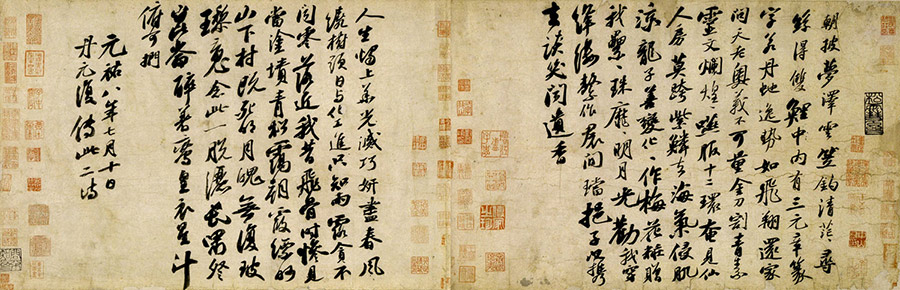 朝披夢澤雲笠釣清茫茫尋
絲得雙鯉中內有三元章篆
字若丹蛇逸勢如飛翔還家
問天老奧義不可量金刀割青素
靈文爛煌煌嚥服十二環奄見仙
人房莫跨紫鱗去海氣侵肌
涼龍子善變化化作梅花妝贈
我纍纍珠靡靡明月光勸我穿
絳縷繫作裙間襠挹子以攜
去談笑聞遺香
人生燭上華光滅巧妍盡春風
繞樹頭日與化工進只知雨露貪不
聞零落近我昔飛骨時慘見
當塗墳青松靄朝霞縹緲
山下村既死明月魄無復玻
璃魂念此一脫灑長嘯祭
崑崙醉著鸞皇衣星斗
俯可捫
元祐八年七月十日
丹元復傳此二詩